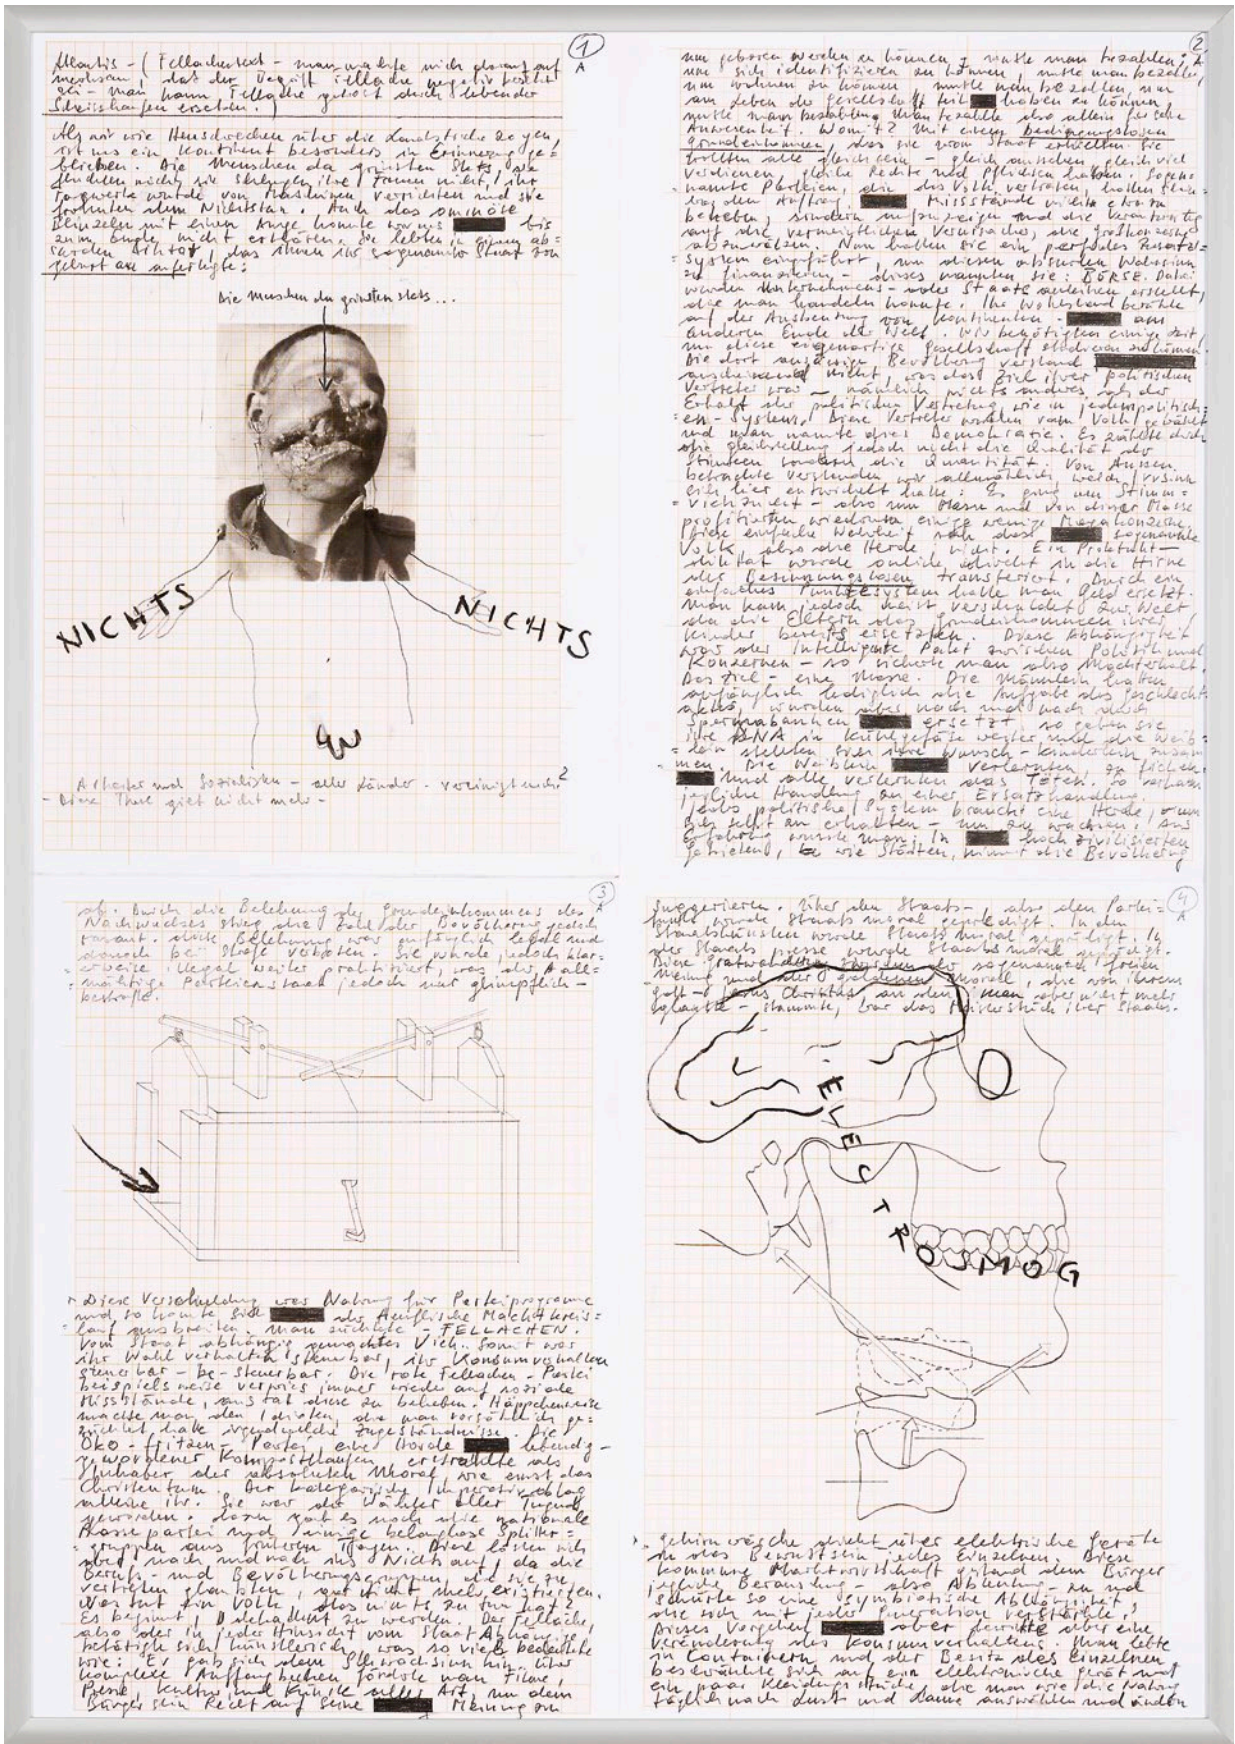 1
A
Atlantis - (Fellachentext - man machte mich darauf auf
merksam, dass der Begriff Fellache negativ besetzt
sei - man kann Fellache getrost durch lebender
Scheisshaufen ersetzen.
Als wir wie Heuschrecken über die Landstriche zogen,
ist uns ein Kontinent besonders in Erinnerung ge=
blieben. Die Menschen da grinsten stets, sie
nicht, sie ihre Frauen nicht, ihr
Tagwerk wurde von Maschinen verrichtet und sie
fröhnten dem Nichtstun. Auch das ominöse
Blinzeln mit einem Auge konnte man uns bis
zum Ende nicht erklären. Sie lebten in einem ab=
surden Diktat, das ihnen ihr sogenannter Staat von
geburt an auferlegte:
Die Menschen da grinsten stets...
NICHTS
NICHTS
Arbeiter und Sozialisten - aller Länder - vereinigt euch 2
- Diese These gilt nicht mehr -
2
A
um geboren werden zu können, musste man bezahlen,
um sich identifizieren zu können, musste man bezahlen,
um wohnen zu können musste man bezahlen, um
am Leben der Gesellschaft teil haben zu können,
musste man bezahlen. Man bezahlte also allein für seine
Anwesenheit. Womit? Mit einem bedingungslosen
grundeinkommen, das sie vom Staat erhielten. Sie
wollten alle gleich sein - gleich aussehen, gleich viel
verdienen, gleiche Rechte und Pflichten haben. Sogen=
nannte Parteien, die das Volk vertraten, hatten
den Auftrag, Missstände nicht etwa zu
beheben, sondern aufzuzeigen und die Verantwortung
auf die vermeintlichen Verursacher, die Grosskonzerne
abzuwälzen. Nun hatten sie ein perfides Zusatz=
system eingeführt, um diesen absurden Wahnsinn
zu finanzieren - dieses nannten sie: BÖRSE. Dabei
wurden Unternehmens- oder Staatsanleihen erstellt,
die man handeln konnte. Ihr Wohlstand beruhte
auf der Ausbeutung von Kontinenten am
anderen Ende der Welt. Wir benötigten einige Zeit,
um diese eigenartige Gesellschaft studieren zu können.
Die dort ansässige Bevölkerung verstand
anscheinend nicht, was das Ziel ihrer politischen
Vertreter war - nämlich nichts anderes als der
Erhalt der politischen Vertretung wie in jedem politisch=
en-System. Diese Vertreter wurden vom Volk gewählt
und man nannte dies Demokratie. Es zählte durch
die gleichstellung jedoch nicht die Qualität der
Stimmen sondern die Quantität. Von Aussen
betrachtet verstanden wir allmählich, welch Irrsinn
sich hier entwickelt hatte: Es ging um Stimm=
viehzucht - also um Masse und von dieser Masse
profitierten wiederum einige wenige Megakonzerne.
Diese einfache Wahrheit sah das sogenannte
Volk, also die Herde, nicht. Ein Produkt-
diktat wurde online, direkt in die Hirne
der Besinnungslosen transferiert. Durch ein
einfaches Punktesystem hatte man Geld ersetzt.
Man kam jedoch meist verschuldet zur Welt,
da die Eltern das Grundeinkommen ihrer
Kinder bereits ersetzten. Diese Abhängigkeit
war der intelligente Pakt zwischen Politik und
Konzernen - so sicherte man also Machterhalt.
Das Ziel - eine Masse. Die Männlein hatten
anfänglich lediglich die Aufgabe des Geschlechts
aktes, wurden aber nach und nach durch
Spermabanken ersetzt, so gaben sie
ihre DNA in Kühlgefässe weiter und die Weib=
lein stellten sich ihre Wunsch-Kinderlein zusam
men. Die Weiblein verlernten zu
und alle verlernten das Töten. So verkam
jegliche Handlung zu einer Ersatzhandlung.
Jedes politische System braucht eine Herde, um
sich selbst zu erhalten - um zu wachsen. Aus
Erfahrung wusste man: In hoch zivilisierten
Gebieten, wie Städten, nimmt die Bevölkerung
3
A
ab. Durch die Belehnung des grundeinkommens des
Nachwuchses stieg die Zahl der Bevölkerung jedoch
rasant. Diese Belehnung war anfänglich legal und
danach bei Strafe verboten. Sie wurde jedoch klar=
erweise illegal weiter praktiziert, was der all=
mächtige Parteienstaat jedoch nur glimpflich -
bestrafte.
Diese Verschuldung war Nahrung für Parteiprogramme
und so konnte sich der teuflische Machtkreis=
lauf ausbreiten. Man züchtete - FELLACHEN.
Vom Staat abhängig gemachtes Vieh. Somit war
ihr Wahlverhalten steuerbar, ihr Konsumverhalten
steuerbar - be-steuerbar. Die rote Fellachen-Partei
beispielsweise verwies immer wieder auf soziale
Missstände, anstatt diese zu beheben. Häppchenweise
machte man den Idioten, die man vorsätzlich ge=
züchtet hatte irgendwelche Zugeständnisse. Die
Öko-fritzen-Partei, eine Horde lebendig-
gewordener Komposthaufen, erstrahlte als
Inhaber der absoluten Moral, wie einst das
Christentum. Der kategorische Imperativ oblag
alleine ihr. Sie war der Wächter aller Tugend
geworden. Dann gab es noch die nationale
Rassepartei und einige belanglose Splitter=
gruppen aus früheren Tagen. Diese lösten sich
aber nach und nach ins Nichts auf, da die
Berufs- und Bevölkerungsgruppen, die sie zu
vertreten glaubten, gar nicht mehr existierten.
Was tut ein Volk, das nichts zu tun hat?
Es beginnt, dekadent zu werden. Der Fellache,
also der in jeder Hinsicht vom Staat Abhängige,
betätigte sich künstlerisch, was so viel bedeutete
wie: Er gab sich dem Schwachsinn hin. Über
komplexe Auffangbecken förderte man Filme,
Presse, Kultur und Künste aller Art, um dem
Bürger sein Recht auf seine Meinung zu
4
A
suggerieren. Über den Staats-, also den Partei=
funk wurde Staatsmoral gepredigt. In den
Staatskünsten wurde Staatsmoral gepredigt. In
der Staatspresse wurde Staatsmoral gepredigt.
Diese gratwanderung zwischen der sogenannten freien
Meinung und der goldenen Moral, die von ihrem
gott - Jesus Christus, an den man aber nicht mehr
glaubte - stammte, war das Meisterstück ihrer Staats-
ELEKTROSMOG
gehirnwäsche direkt über elektrische Geräte
in das Bewusstsein jedes Einzelnen. Diese
kommune Marktwirtschaft gestand dem Bürger
jegliche Berauschung - also Ablenkung - zu und
schürte so eine symbiotische Abhängigkeit,
die sich mit jeder Generation verstärkte.
Dieses Vorgehen aber bewirkte aber eine
Veränderung des Konsumverhaltens. Man lebte
in Containern und der Besitz des Einzelnen
beschränkte sich auf ein elektronisches gerät und
ein paar Kleidungsstücke, die man wie die Nahrung
täglich nach Lust und Laune auswählen und ändern